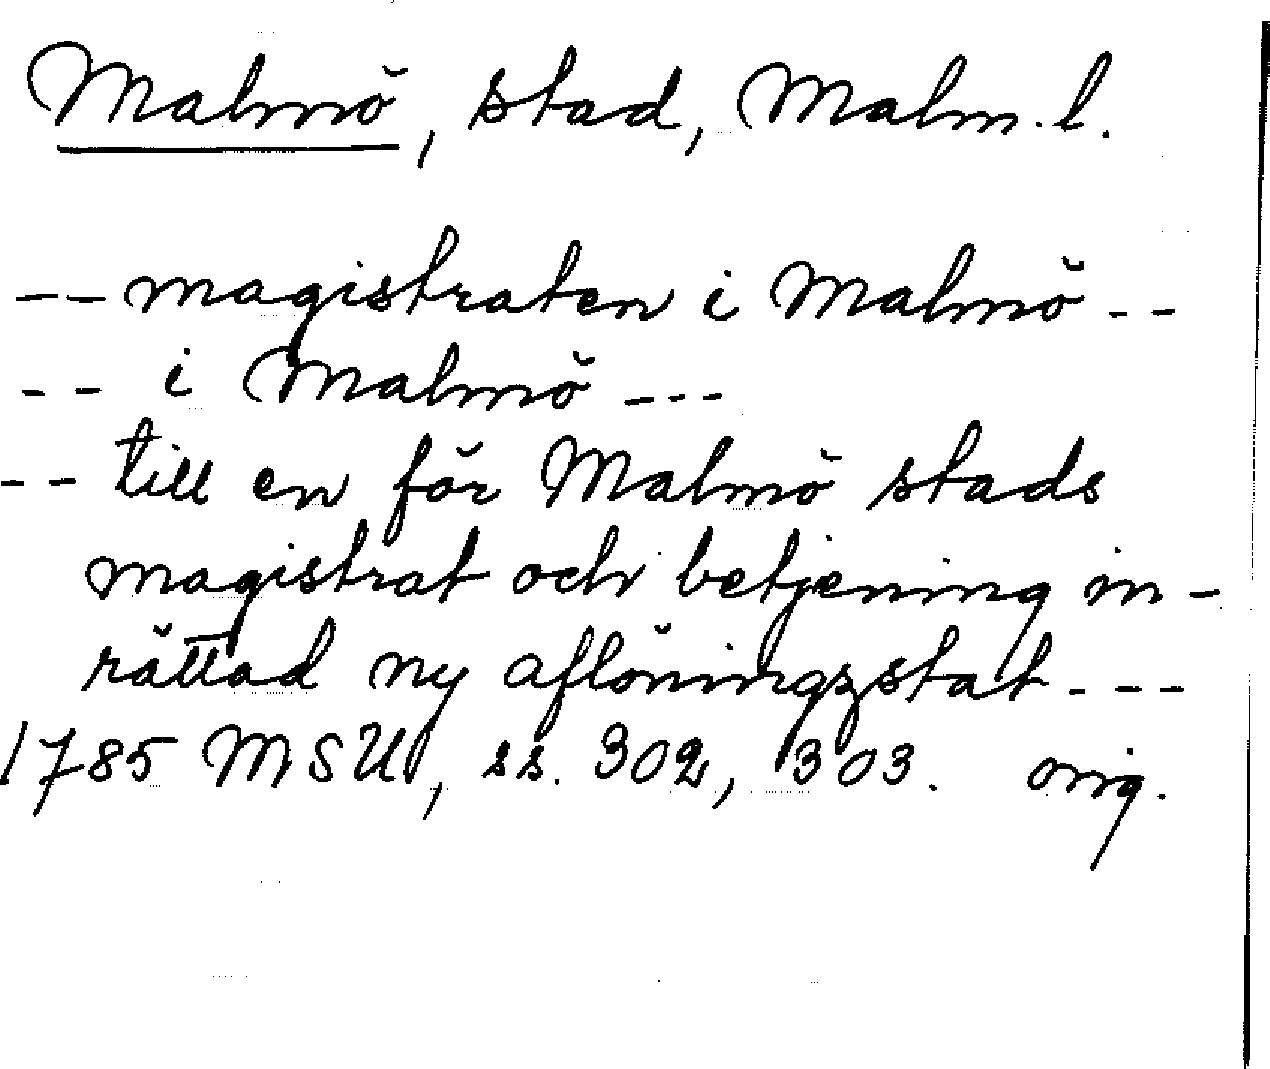 Malmö, stad, Malm. l.
-- magistraten i Malmö --
-- i Malmö ---
-- till en för Malmö stads
magistrat och betjening in-
rättad ny aflöningzstat ---
1785 MSU, ss. 302, 303. orig.